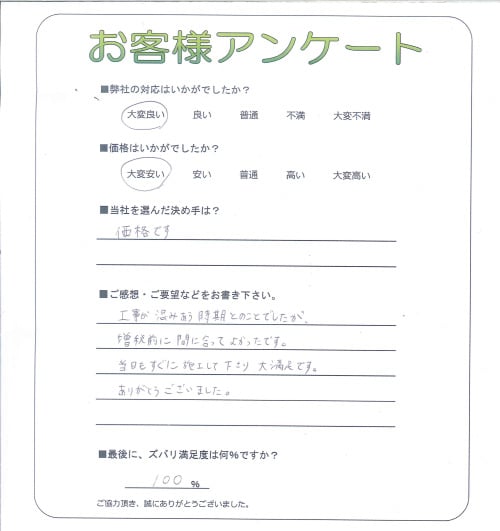 お客様アンケート
■弊社の対応はいかがでしたか？
大変良い 良い 普通 不満 大変不満
■価格はいかがでしたか？
大変安い 安い 普通 高い 大変高い
■当社を選んだ決め手は？
価格です
■ご感想・ご要望などをお書き下さい。
工事が混みあう時期とのことでしたが、
増税前に間に合ってよかったです。
当日もすぐに施工して下さり大満足です。
ありがとうございました。
■最後に、ズバリ満足度は何%ですか？
100 %
ご協力頂き、誠にありがとうございました。